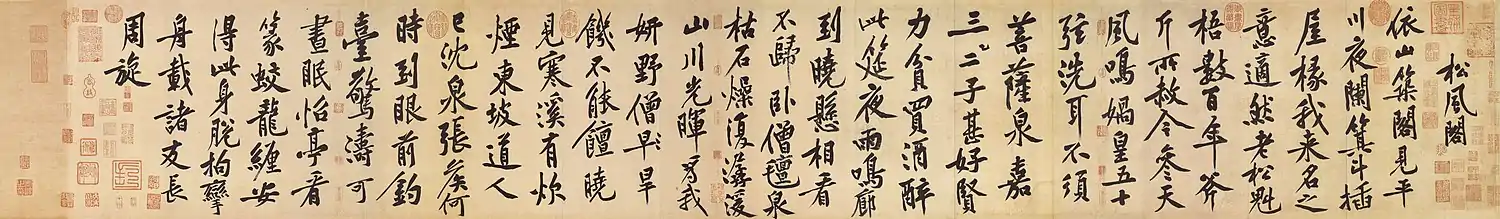 松風閣
依山築閣見平
川夜闌箕斗插
屋椽我来名之
意適然老松魁
梧數百年斧
斤所赦今參天
風鳴媧皇五十
弦洗耳不須
菩薩泉嘉
三二子甚好賢
力貧買酒醉
此筵夜雨鳴廊
到曉懸相看
不歸卧僧氈泉
枯石燥復潺湲
山川光暉為我
妍野僧早旱
饑不能饘曉
見寒溪有炊
煙東坡道人
已沈泉張矦何
時到眼前釣
臺驚濤可
晝眠怡亭看
篆蛟龍纏安
得此身脫拘攣
舟載諸友長
周旋